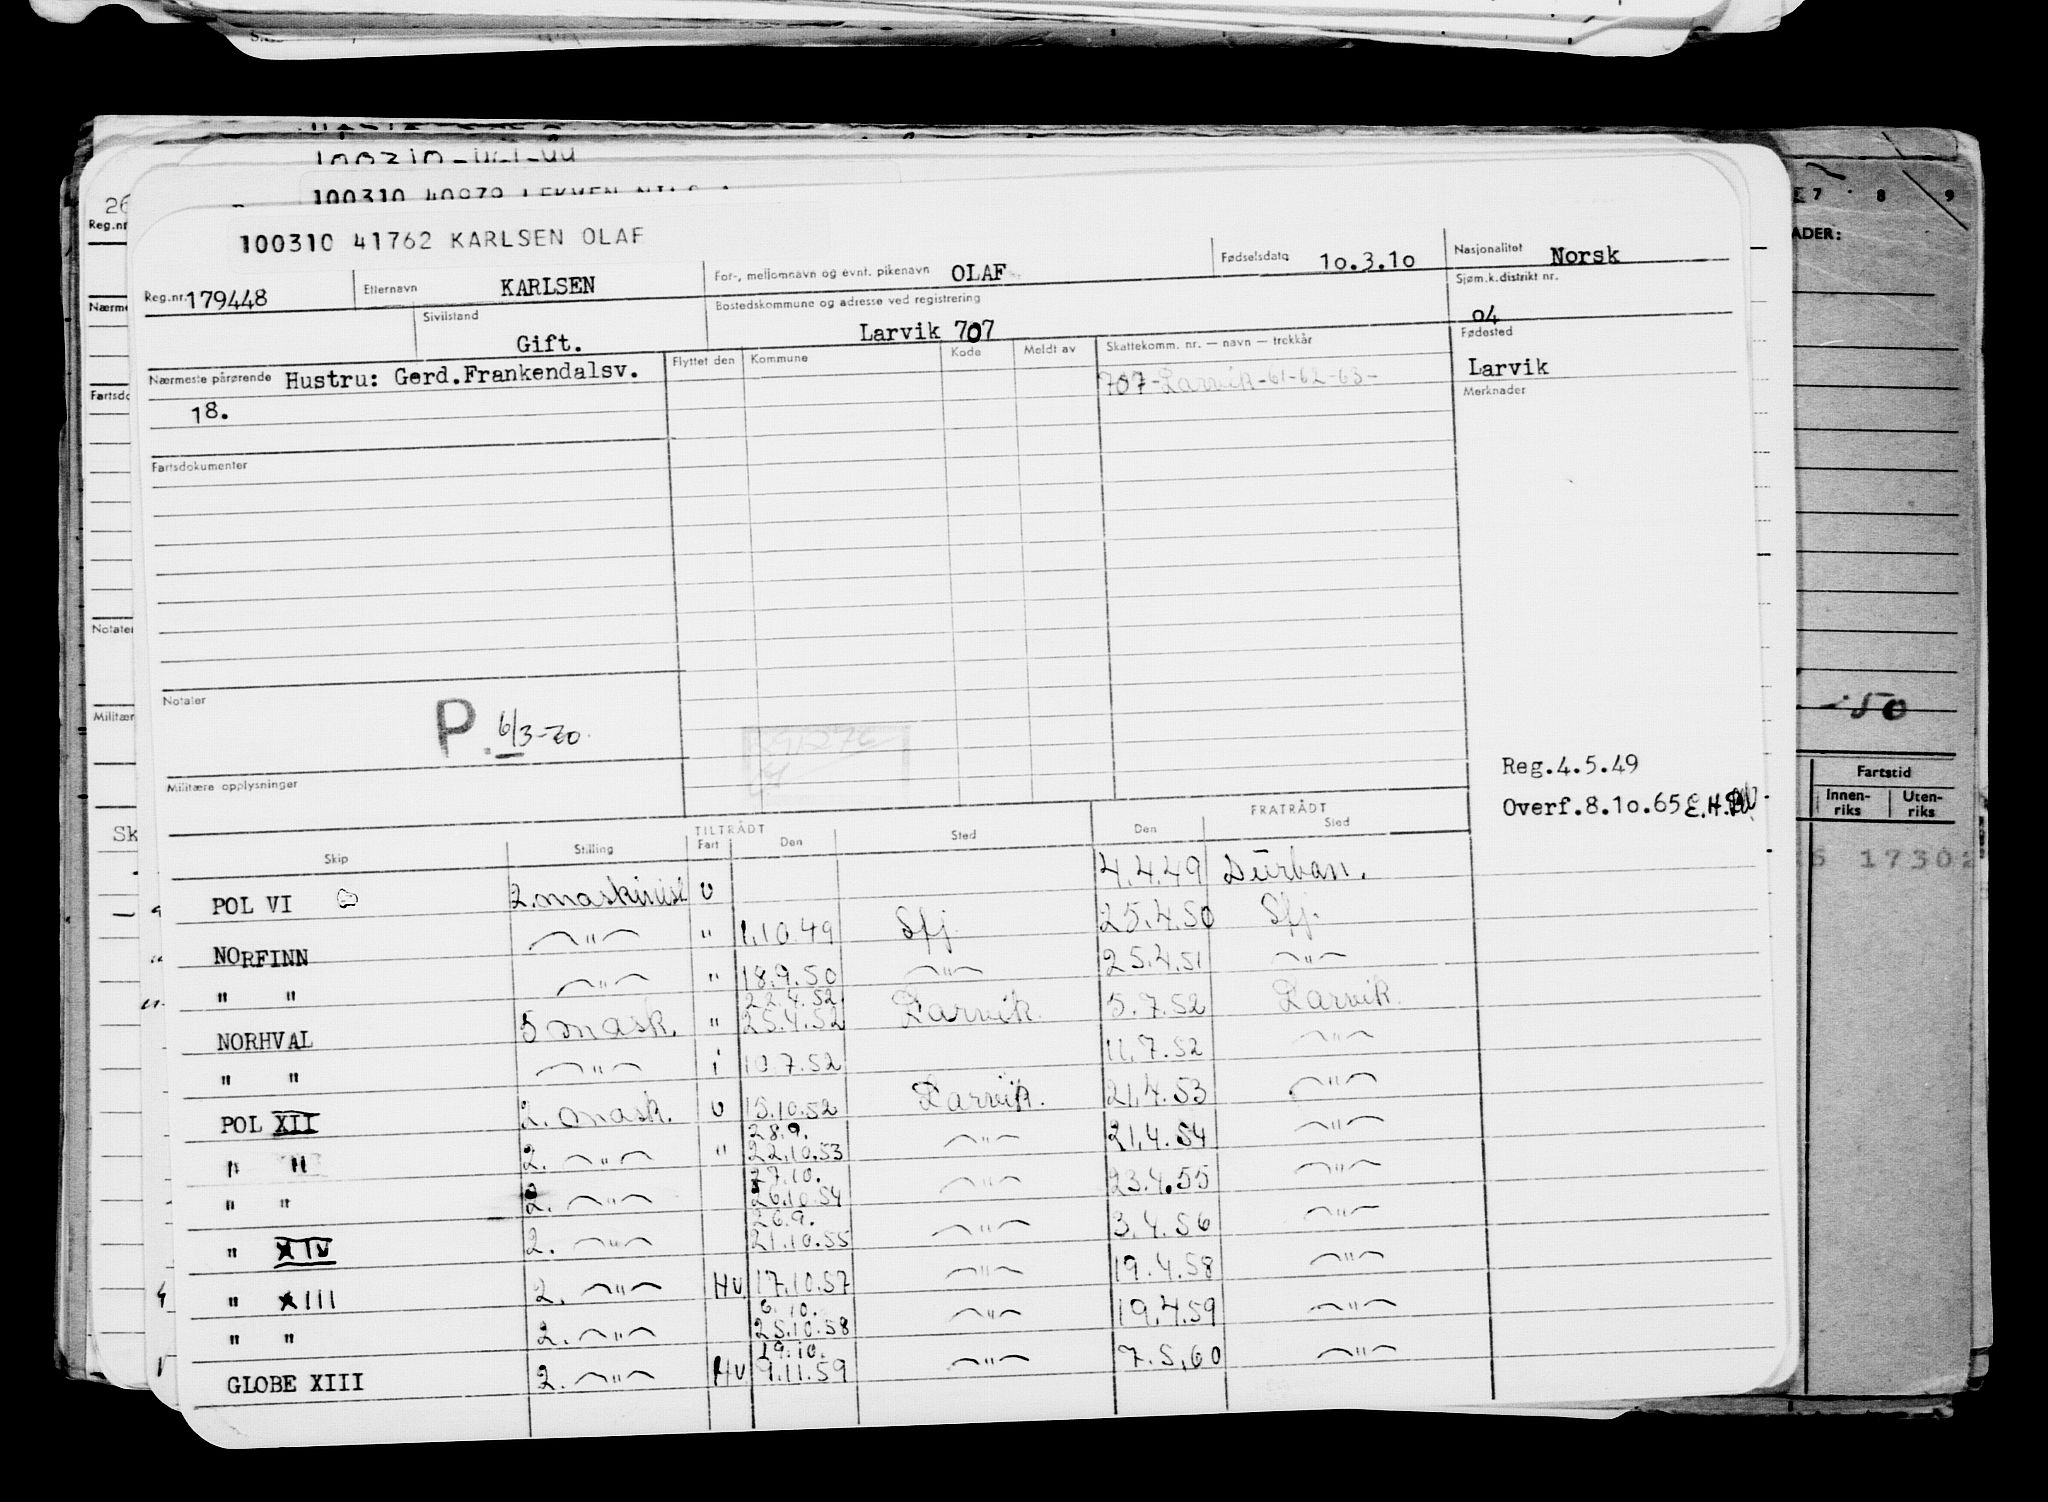 100310 41762 KARLSEN OLAF
Reg.nr. 179448 Etternavn KARLSEN For-, mellomnavn og evnt. pikenavn OLAF Fødselsdato 10.3.10 Nasjonalitet Norsk
Sivilstand Gift. Bostedskommune og adresse ved registrering Larvik 707 Sjøm.k.distrikt nr. 04
Nærmeste pårørende Hustru: Gerd.Frankendalsv. Flyttet den Kommune Kode Meldt av Skattekomm. nr. — navn — trekkår Fødested
18. 707-Larvik-61-62-63- Larvik
Merknader
Fartsdokumenter
Notater
P. 6/3-70.
Militære opplysninger
Reg.4.5.49
Overf.8.10.65 E.H.
TILTRÅDT FRATRÅDT
Skip Stilling Fart Den Sted Den Sted
POL VI 2.maskinist U 4.4.49 Durban.
NORFINN —"— " 1.10.49 Sfj. 25.4.50 Sfj.
" " —"— " 18.9.50 —"— 25.4.51 —"—
22.4.52
NORHVAL 5 mask. " 25.4.52 Larvik. 5.7.52 Larvik.
" " —"— i 10.7.52 11.7.52 —"—
POL XII 2. mask. U 15.10.52 Larvik. 21.4.53 —"—
28.9.
" " 2. —"— " 22.10.53 —"— 21.4.54 —"—
27.10.
" " 2. —"— 26.10.54 —"— 23.4.55 —"—
26.9.
" XIV 2. —"— 21.10.55 —"— 3.4.56 —"—
" XIII 2. —"— HU 17.10.57 —"— 19.4.58 —"—
6.10.
" " 2. —"— 25.10.58 —"— 19.4.59 —"—
19.10.
GLOBE XIII 2. —"— HU 9.11.59 —"— 7.5.60 —"—
26
Reg.nr
Nærme
Fartsdo
Notater
Militær
Sk
7 8 9
ADER:
50
Fartstid
Innen-
riks
Uten-
riks
17302